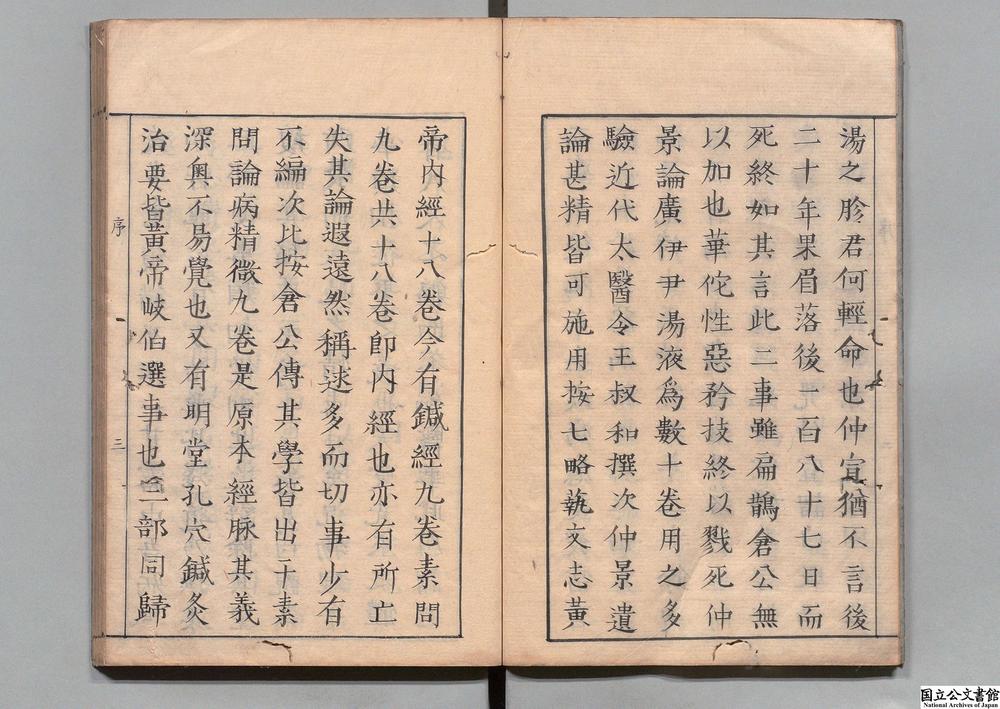 湯之胗君何輕命也仲宣猶不言後
二十年果眉落後一百八十七日而
死終如其言此二事雖扁鵲倉公無
以加也華佗性惡矜技終以戮死仲
景論廣伊尹湯液爲數十卷用之多
驗近代太醫令王叔和撰次仲景遺
論甚精皆可施用按七略蓺文志黃
帝內經十八卷今有鍼經九卷素問
九卷共十八卷卽內經也亦有所亡
失其論遐遠然稱述多而切事少有
不編次比按倉公傳其學皆出于素
問論病精微九卷是原本經脉其義
深奧不易覺也又有明堂孔穴鍼灸
治要皆黃帝岐伯選事也三部同歸
序
三
国立公文書館
National Archives of Japan